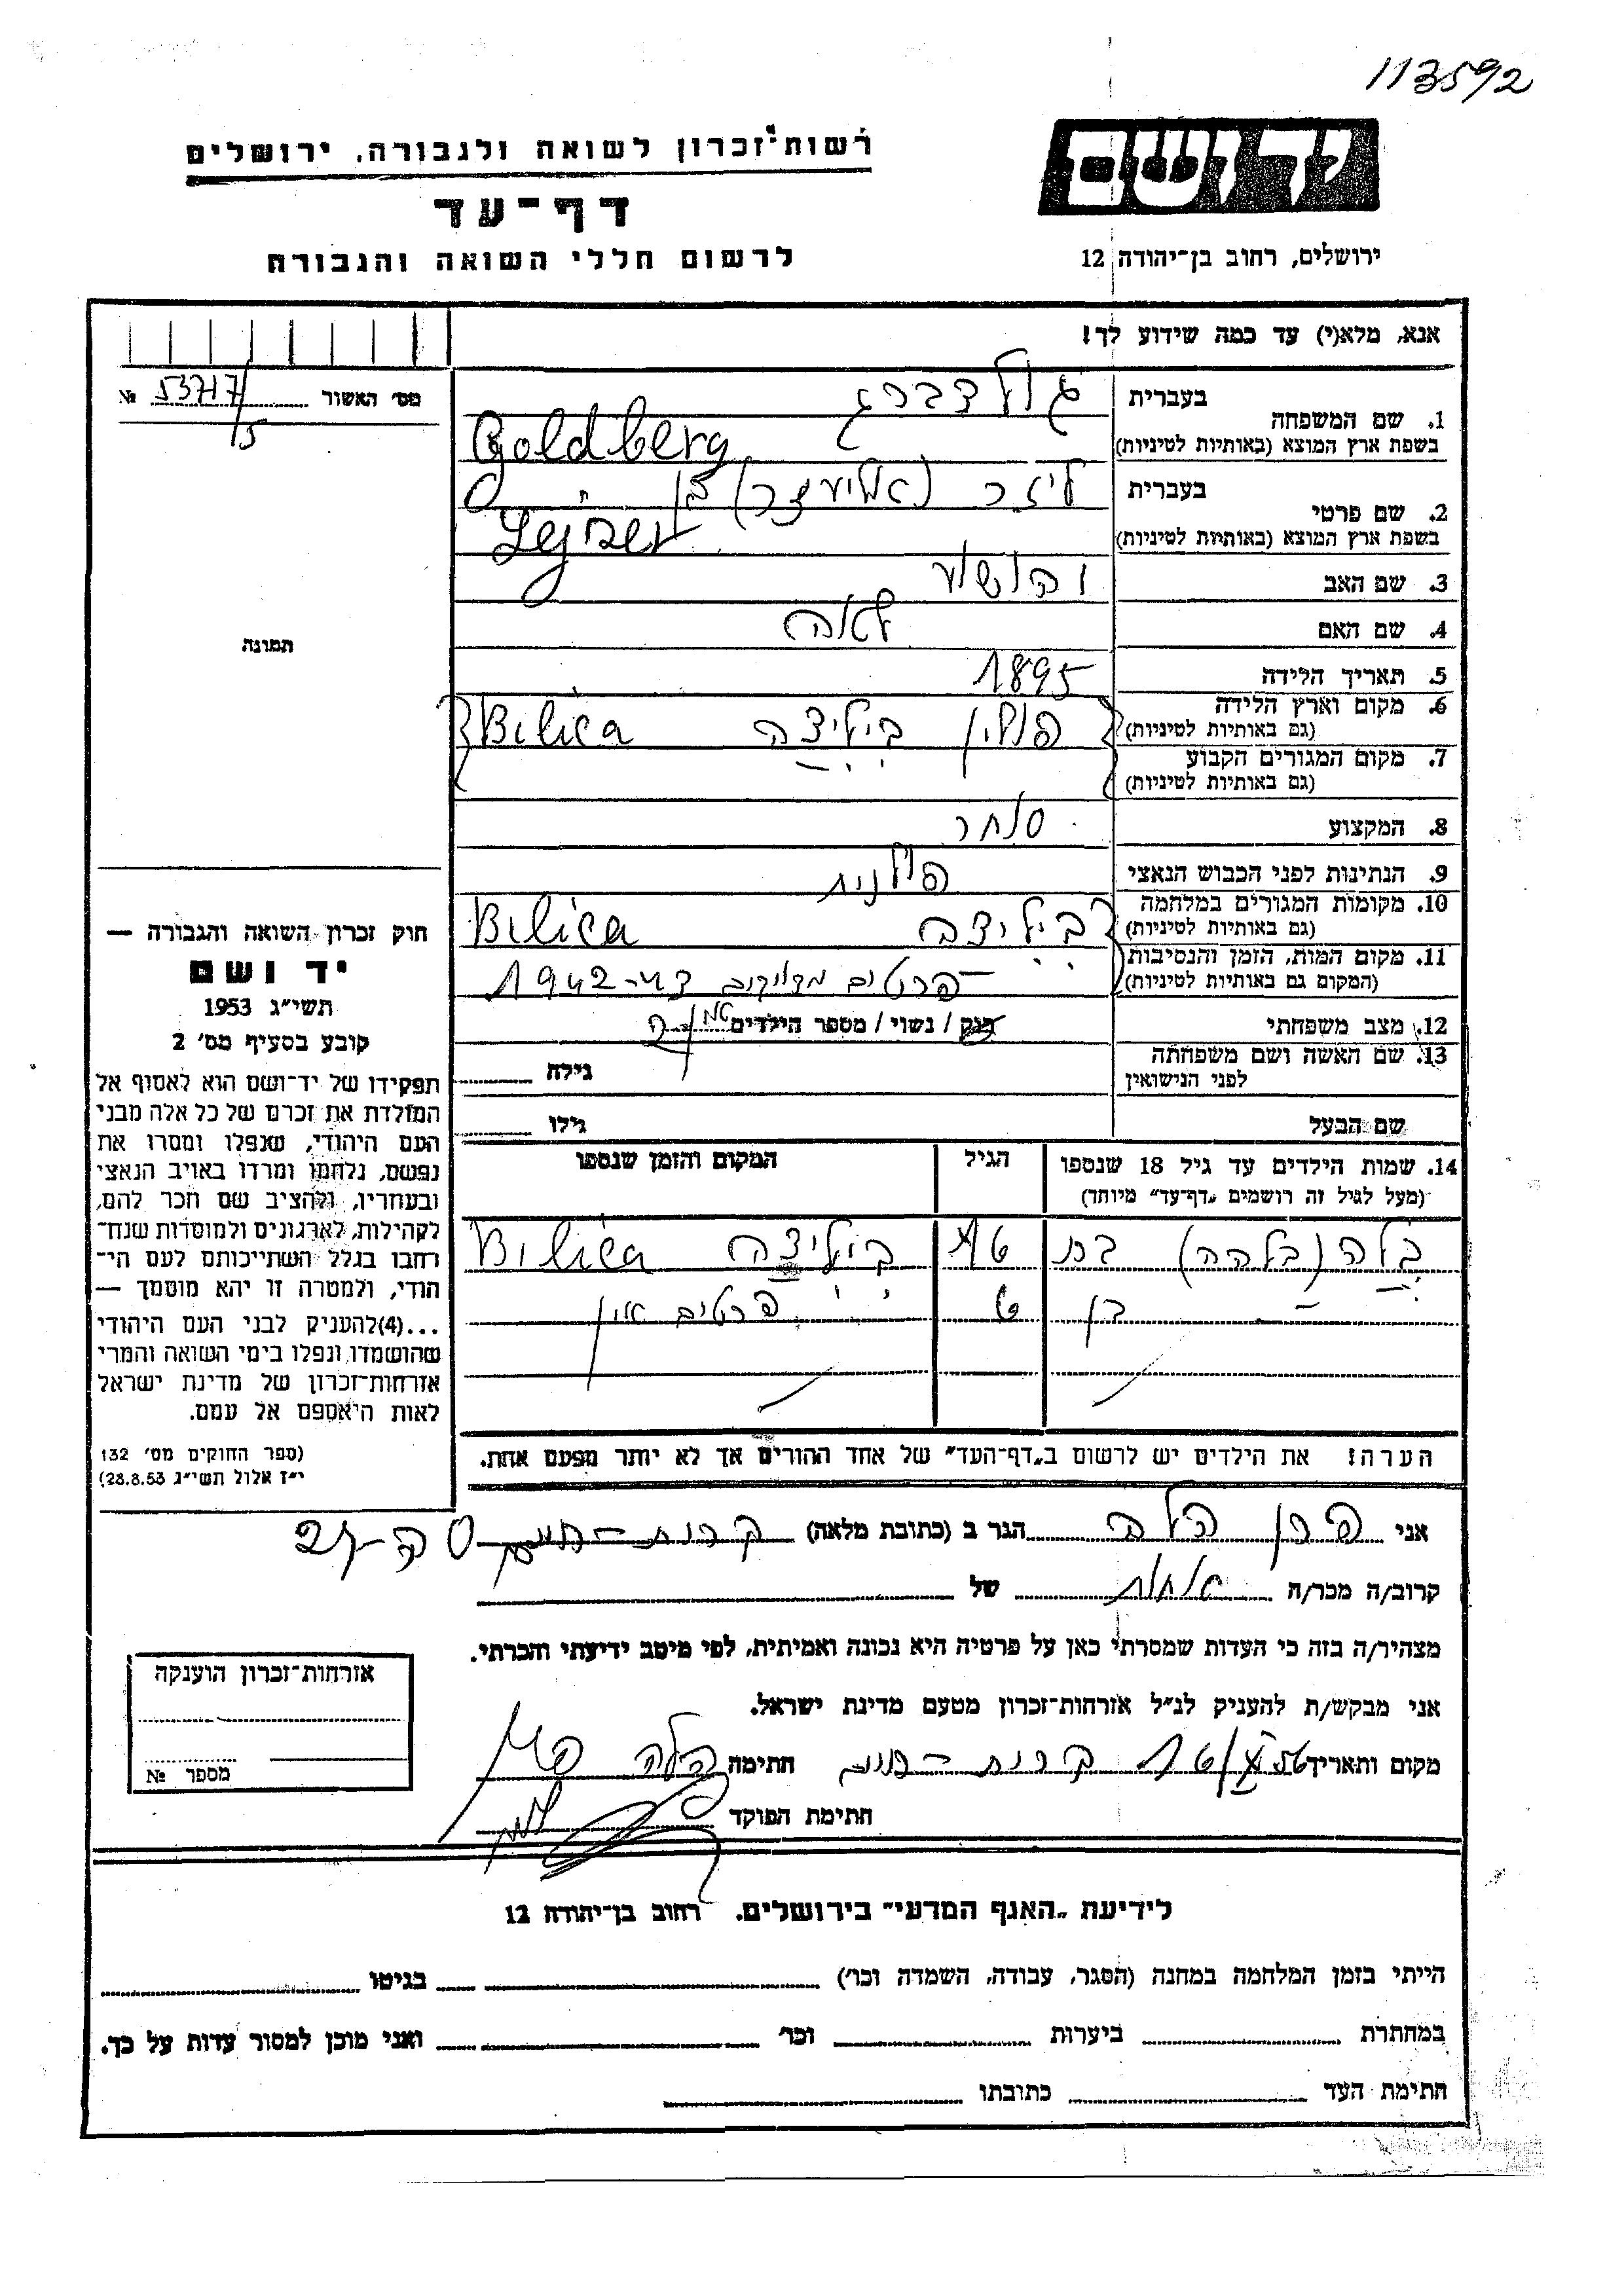 113592
יד ושם
ירושלים, רחוב בן־יהודה 12
רשות־זכרון לשואה ולגבורה, ירושלים
דף־עד
לרשום חללי השואה והגבורה
אנא, מלא(י) עד כמה שידוע לך!
מס׳ האשור 53717/5 №
1. שם המשפחה בעברית גולדברג
בשפת ארץ המוצא (באותיות לטיניות) Goldberg
2. שם פרטי בעברית ליזר (אליעזר) בן
בשפת ארץ המוצא (באותיות לטיניות) Lejzer
3. שם האב יהושע
4. שם האם לאה
5. תאריך הלידה 1895
6. מקום וארץ הלידה (גם באותיות לטיניות) פולין ביליצה Bilica
7. מקום המגורים הקבוע
(גם באותיות לטיניות)
8. המקצוע סוחר
9. הנתינות לפני הכבוש הנאצי פולנית
10. מקומות המגורים במלחמה (גם באותיות לטיניות) ביליצה Bilica
11. מקום המות, הזמן והנסיבות
(המקום גם באותיות לטיניות) פרטים מדויקים 1942
12. מצב משפחתי רווק / נשוי / מספר הילדים
13. שם האשה ושם משפחתה
לפני הנישואין גילה
שם הבעל גילו
14. שמות הילדים עד גיל 18 שנספו הגיל המקום והזמן שנספו
(מעל לגיל זה רושמים „דף־עד” מיוחד)
בלה (בלהה) בת ביליצה Bilica
בן פרטים אין
הערה! את הילדים יש לרשום ב„דף־העד” של אחד ההורים אך לא יותר מפעם אחת.
תמונה
חוק זכרון השואה והגבורה —
יד ושם
תשי״ג 1953
קובע בסעיף מס׳ 2
תפקידו של יד־ושם הוא לאסוף אל
המולדת את זכרם של כל אלה מבני
העם היהודי, שנפלו ומסרו את
נפשם, נלחמו ומרדו באויב הנאצי
ובעוזריו, ולהציב שם וזכר להם,
לקהילות, לארגונים ולמוסדות שנח־
רבו בגלל השתייכותם לעם הי־
הודי, ולמטרה זו יהא מוסמך —
...(4) להעניק לבני העם היהודי
שהושמדו ונפלו בימי השואה והמרי
אזרחות־זכרון של מדינת ישראל
לאות היאספם אל עמם.
(ספר החוקים מס׳ 132
י״ז אלול תשי״ג 28.8.53)
אני הגר ב (כתובת מלאה) קרית־
קרוב/ה מכר/ה אחות של
מצהיר/ה בזה כי העדות שמסרתי כאן על פרטיה היא נכונה ואמיתית, לפי מיטב ידיעתי והכרתי.
אני מבקש/ת להעניק לנ״ל אזרחות־זכרון מטעם מדינת ישראל.
מקום ותאריך קרית־ חתימה
חתימת הפוקד
אזרחות־זכרון הוענקה
מספר №
לידיעת „האגף המדעי” בירושלים. רחוב בן־יהודה 12
הייתי בזמן המלחמה במחנה (הסגר, עבודה, השמדה וכו׳) בגיטו
במחתרת ביערות וכו׳ ואני מוכן למסור עדות על כך.
חתימת העד כתובתו